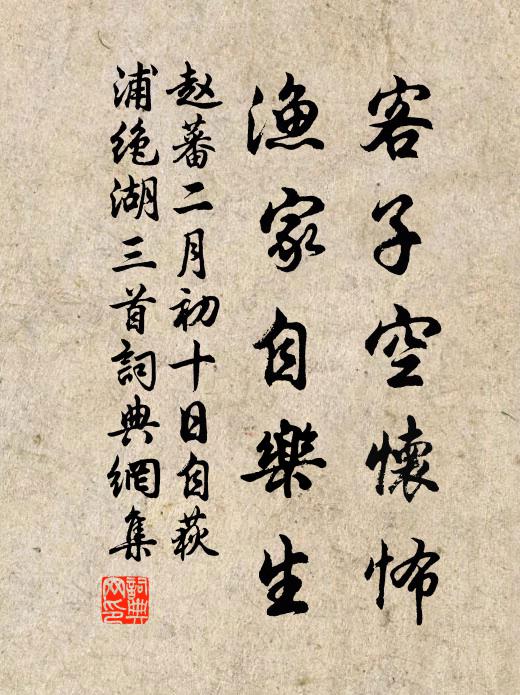 客子空懷怖
漁家自樂生
赵蕃二月初十日自荻
浦绝湖三首詞典網集
詞典网印